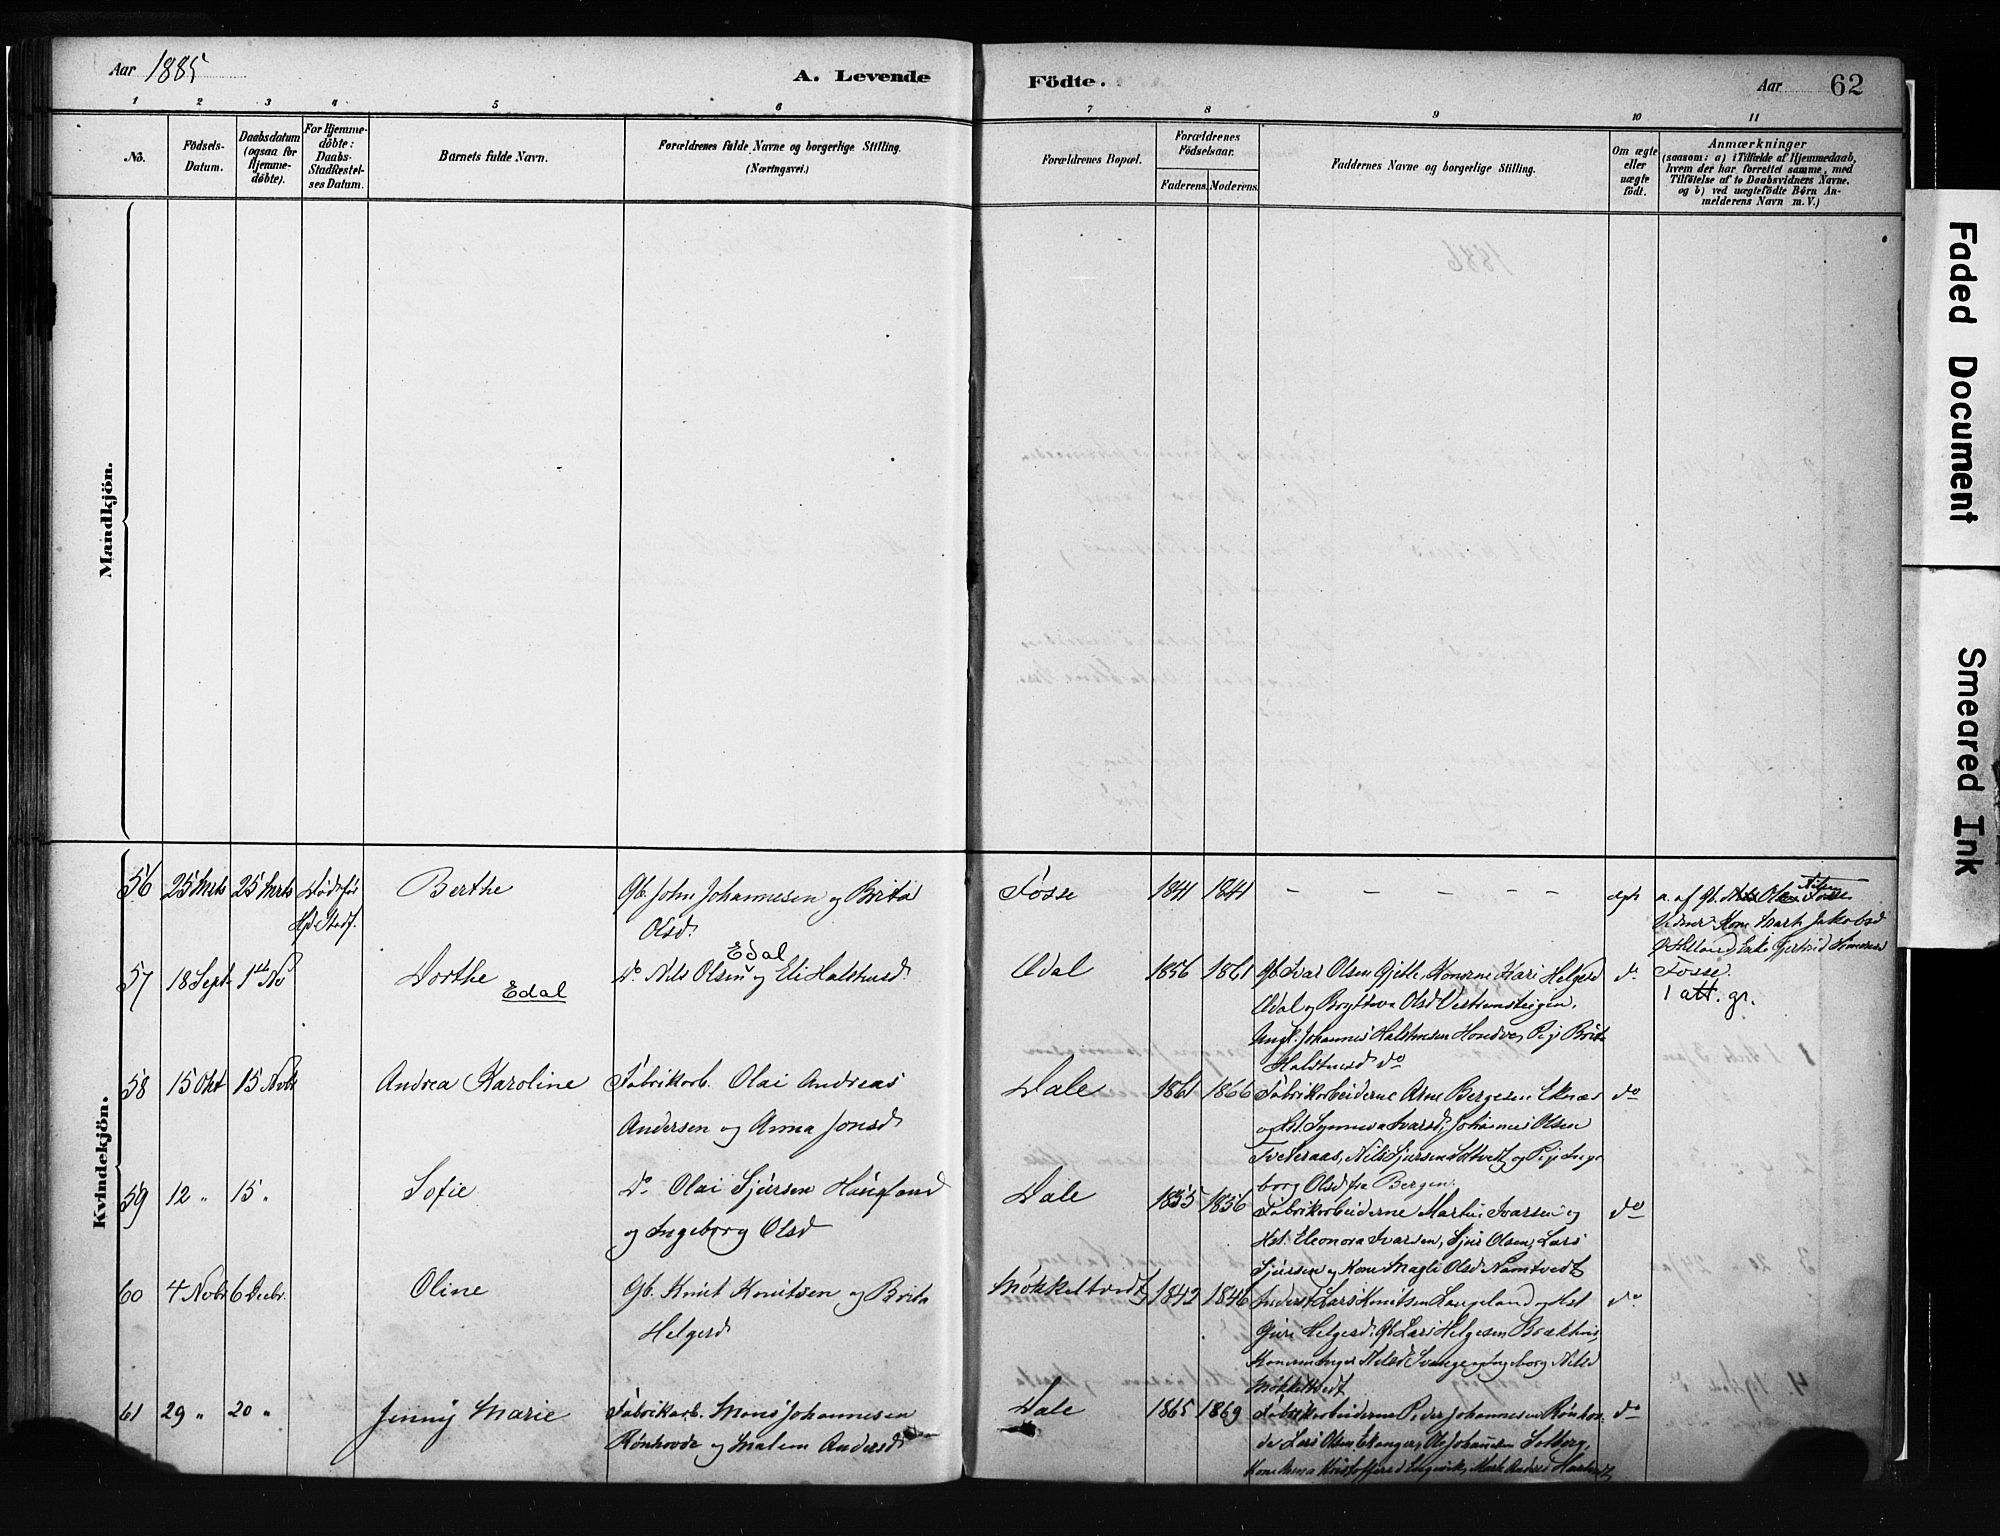 Aar 1885
A. Levende
Födte.
Aar 62
1 2 3 4 5 6 7 8 9 10 11
No.
Födsels-
Datum.
Daabsdatum
(ogsaa for
Hjemme-
döbte).
For Hjemme-
döbte:
Daabs-
Stadfæstel-
ses Datum.
Barnets fulde Navn.
Forældrenes fulde Navne og borgerlige Stilling.
(Næringsvei.)
Forældrenes Bopæl.
Forældrenes
Födselsaar.
Faderens. Moderens.
Faddernes Navne og borgerlige Stilling.
Om ægte
eller
uægte
födt.
Anmærkninger
(saasom: a) i Tilfælde af Hjemmedaab,
hvem der har forrettet samme, med
Tilföielse af to Daabsvidners Navne.
og b) ved uægtefödte Börn An-
melderens Navn m. V.)
Mandkjön.
Kvindekjön.
56 25 Mrts 25 Mrts Död før
Hj. Stadf.
Berthe
Gb. John Johannesen og Brita
Olsd.
Fosse 1841 1841 - - - - - - - ægte
a. af Gb. Ole Nilsen Fosse
Vidner: Kone Marta Jakobsd
Helland, Enke Gjertrud Simonsd
Fosse.
57 18 Sept 1ste No
Dorthe
Edal
Do. Nils Olsen Edal og Eli Halstensd
Ædal 1856 1861
Gb. Ivar Olsen Gjetle, Konerne Kari Helgesd
Ædal og Brytteva Olsd Vestrensteigen,
Ungk. Johannes Halstensen Hondve, Pige Brita
Halstensd do
do
1 att. gr.
58 15 Okt 15 Novb
Andrea Karoline
Fabrikarb. Olai Andreas
Andersen og Anna Jonsd
Dale 1861 1866
Fabrikarbeiderne Arne Bergesen Eknæs
og Hst. Synneva Ivarsd, Johannes Olsen
Tveteraas, Nils Sjursen, og Pige Inge
borg Olsd fra Bergen.
do
59 12 " 15 "
Sofie
Do. Olai Sjursen Haugland
og Ingeborg Olsd
Dale 1855 1856
Fabrikarbeiderne Martin Ivarsen og
Hst. Eleonora Ivarsen, Sjur Olsen, Lars
Sjursen og Kone Magli Olsd Namtvedt
do
60 4 Novbr 6 Decbr.
Oline
Gb. Knut Knutsen og Brita
Helgesd
Mökkeltvedt 1842 1846
Inderst Lars Knutsen Langeland og Hst
Guri Helgesd, Gb. Lars Helgesen Brækhus,
Konerne Inger Nilsd og Ingeborg Nilsd
Mökkeltvedt
do
61 29 " 20 "
Jenny Marie
Fabrikarb. Mons Johannesen
Rønhovde og Malene Andersd
Dale 1865 1869
Fabrikarbeiderne Peder Johannesen Rönhov
de, Lars Olsen Ekanger, Ole Johannesen Solberg,
Kone Anna Kristoffersd, Marta Andersd
do
Faded Document
Smeared Ink